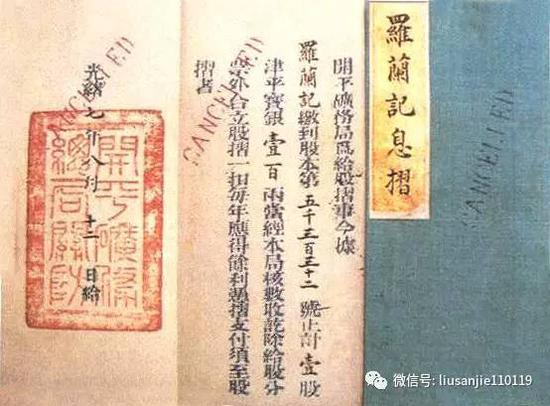 羅蘭記息摺
CANCELED
開平礦務局爲給股摺事今據
羅蘭記繳到股本第五千三百三十二號止計壹股
津平寶銀壹百兩當經本局核數收訖除給股分
票外合立股摺一扣每年應得餘利憑摺支付須至股
摺者
CANCELED
光緒七年八月十二日給
CANCELED
開平礦務
總局關防
微信号: liusanjie110119